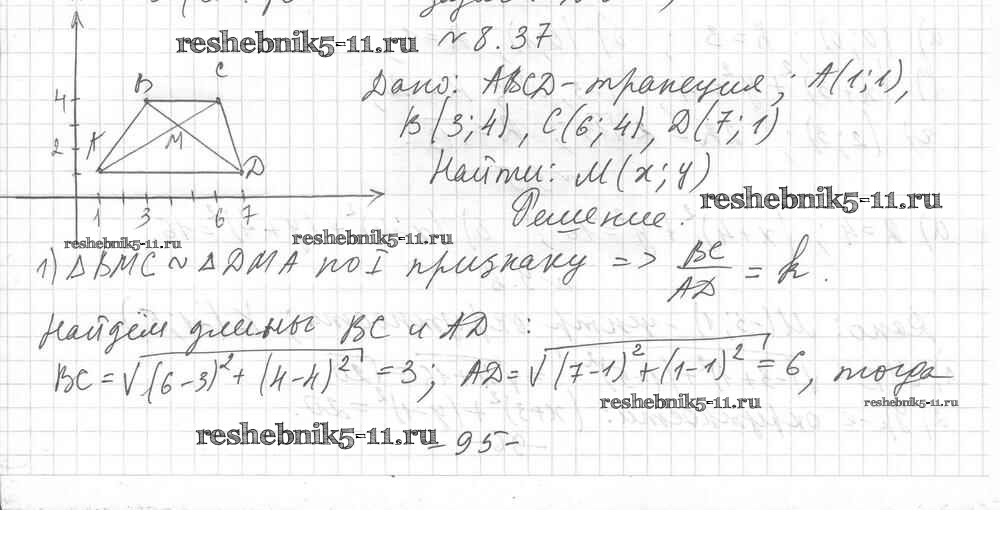 reshebnik5-11.ru
№ 8.37
Дано: ABCD – трапеция; A(1;1),
B(3;4), C(6;4), D(7;1)
Найти: M(x;y)
reshebnik5-11.ru
Решение.
B C
4
M
2
A D
1 3 6 7
reshebnik5-11.ru reshebnik5-11.ru
1) △BMC ~ △DMA по I признаку => BC/AD = k.
Найдём длины BC и AD:
BC = √((6-3)²+(4-4)²) = 3, AD = √((7-1)²+(1-1)²) = 6, тогда
reshebnik5-11.ru reshebnik5-11.ru
reshebnik5-11.ru
- 95 -